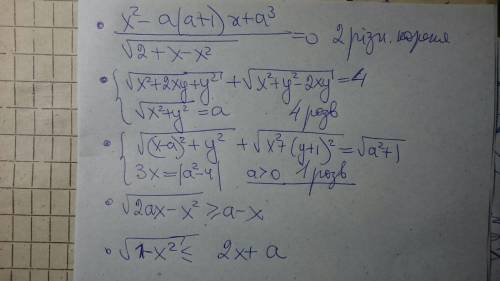 • (x² - a(a+1)x + a³) / √(2+x-x²) = 0 2 різн. кореня
• { √(x²+2xy+y²) + √(x²+y²-2xy) = 4
√(x²+y²) = a 4 розв
• { √((x-a)²+y²) + √(x²+(y+1)²) = √(a²+1)
3x = |a²-4| a>0 1 розв
• √(2ax-x²) ≥ a-x
• √(1-x²) ≤ 2x + a